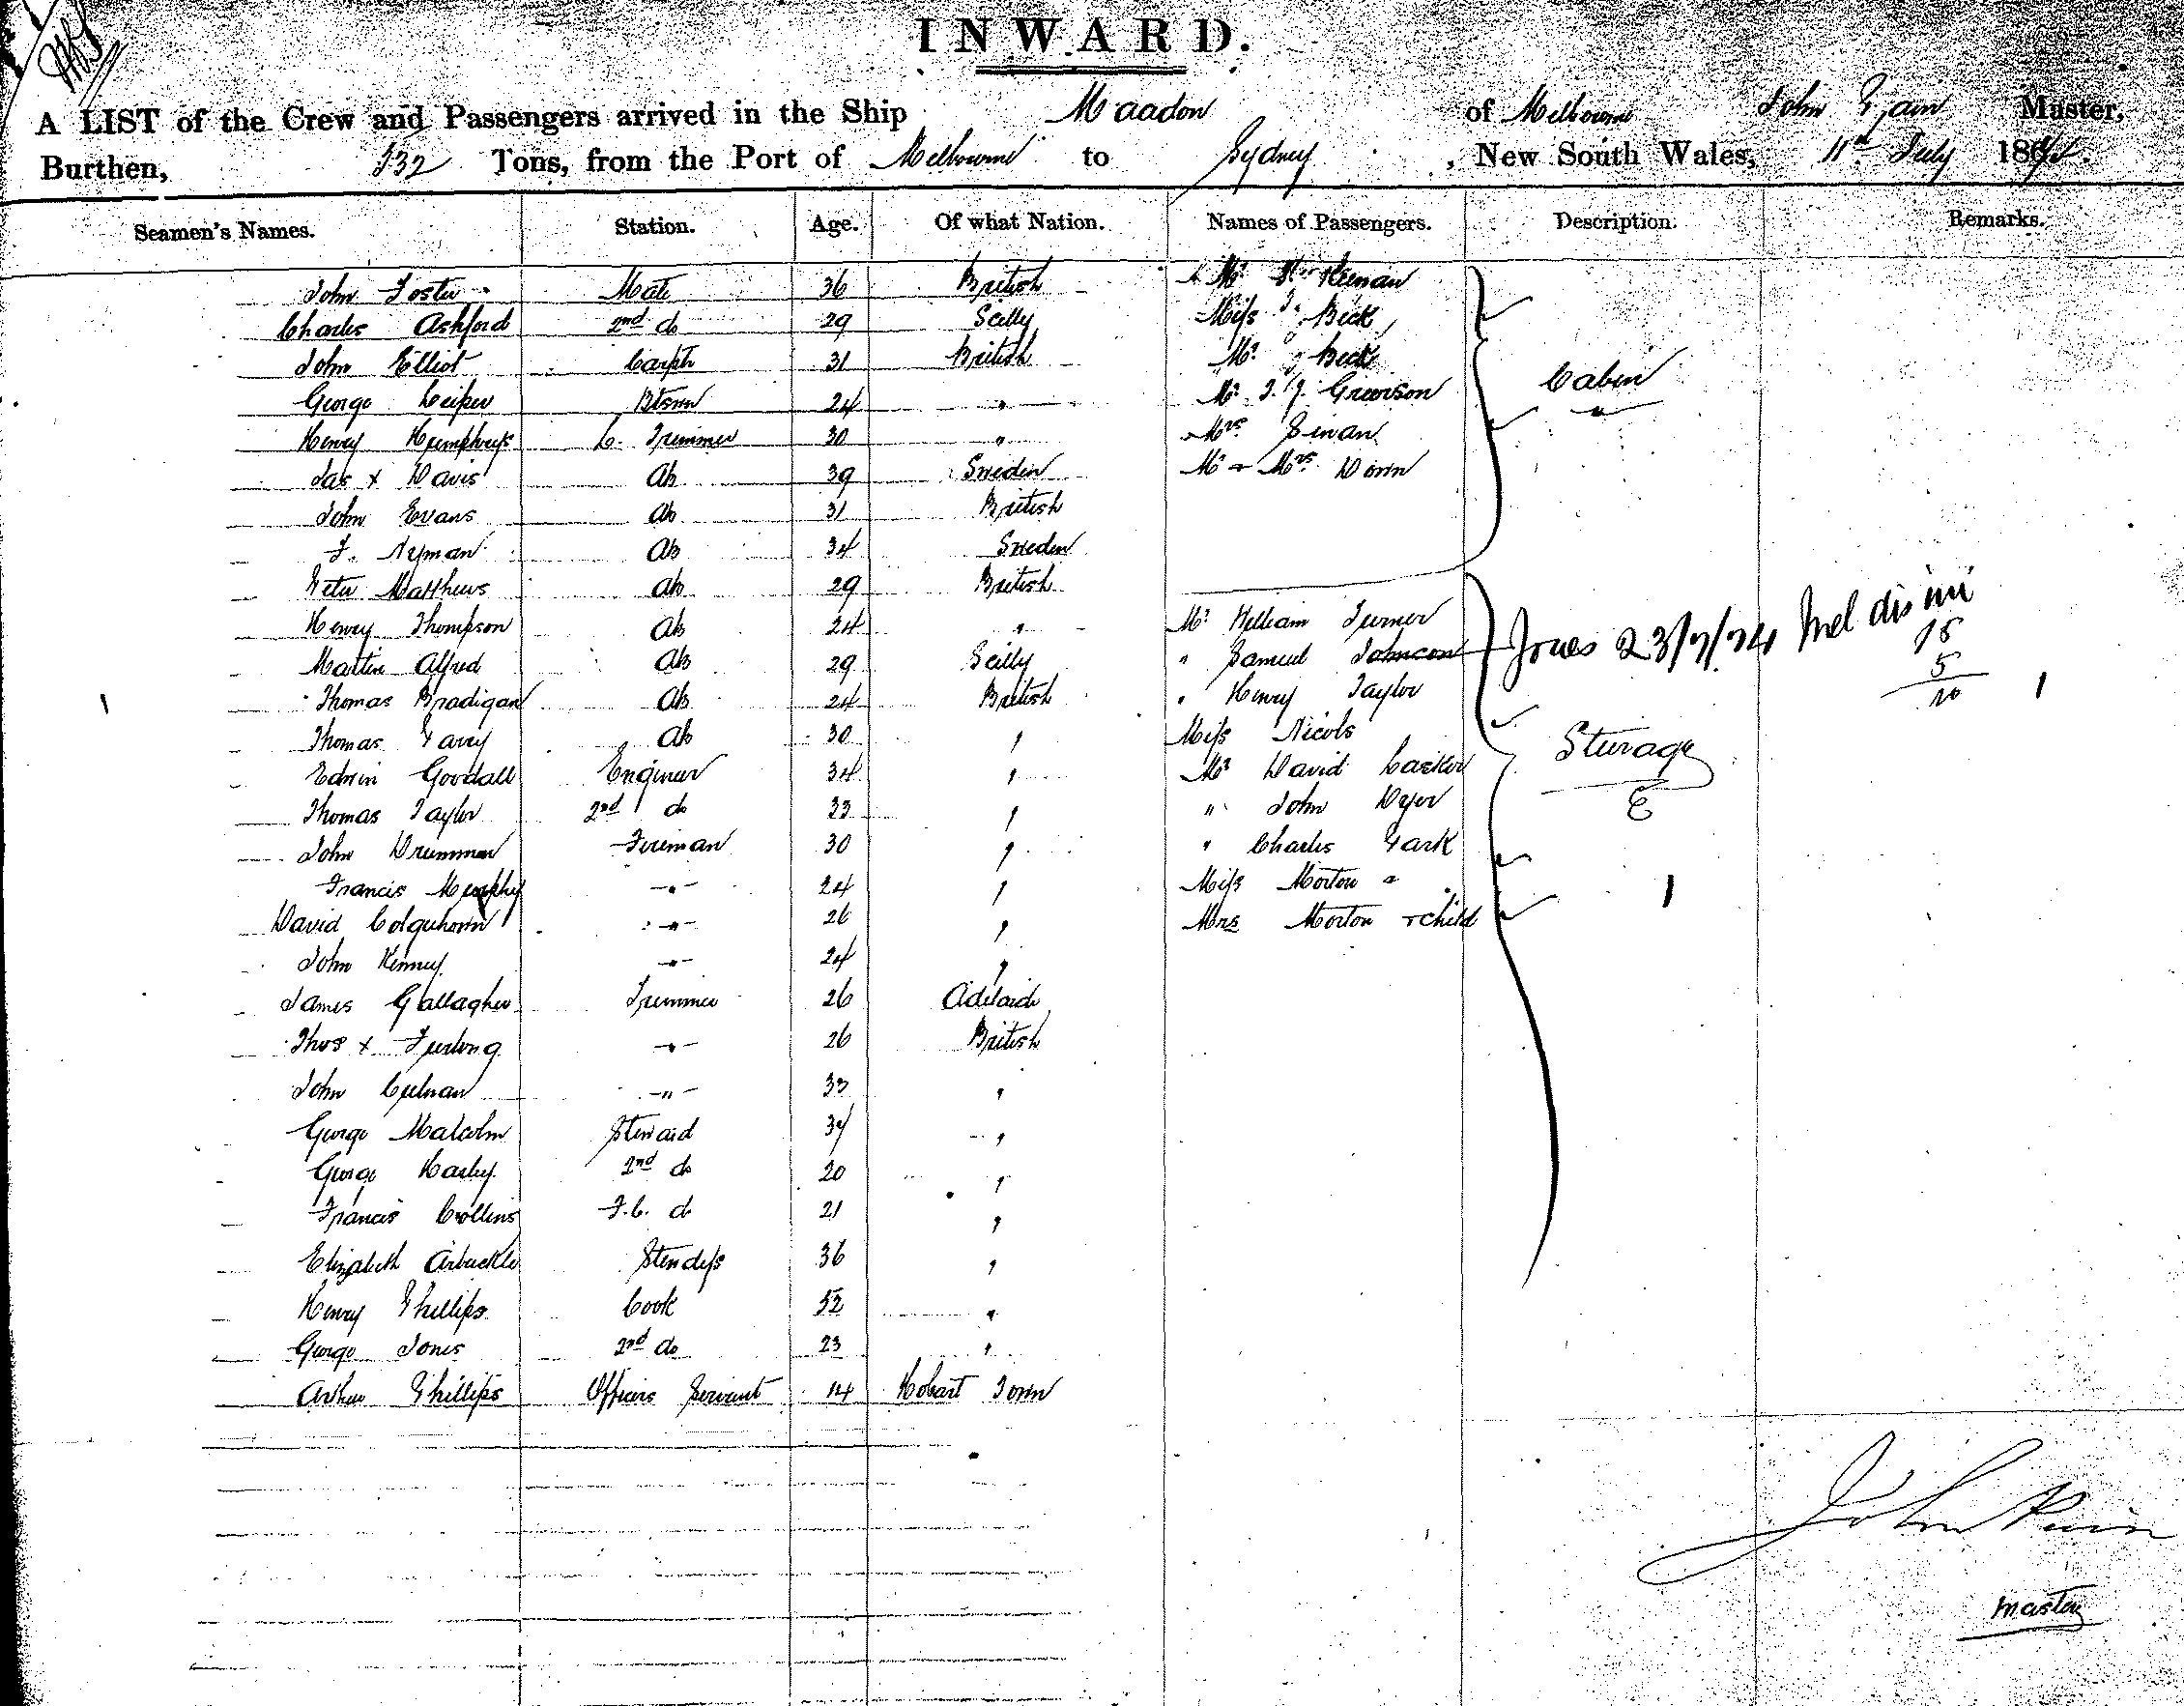 INWARD.
A LIST of the Crew and Passengers arrived in the Ship Macedon of Melbourne John Master,
Burthen, 532 Tons, from the Port of Melbourne to Sydney, New South Wales, 11th July 187
Seamen's Names. Station. Age. Of what Nation. Names of Passengers. Description. Remarks.
John Foster Mate 36 British Mr Keenan
Charles Ashford 2nd do 29 Scilly Miss Beck
John Elliot Carptr 31 British Mr Beck
George Leiper Btswn 24 " Mr Grierson Cabin
Henry Humphreys L. Trimmer 30 " Mrs
Jas x Davis Ab 39 Sweden Mr & Mrs Dorin
John Evans Ab 31 British
F. Nyman Ab 34 Sweden
Peter Matthews Ab 29 British
Henry Thompson Ab 24 " Mr William Turner
Martin Alfred Ab 29 Scilly " Samuel Johnson Jones 23/7/74 Mel dis
Thomas Bradigan Ab 24 British " Henry Taylor
Thomas Ab 30 " Miss Nicols Steerage
Edwin Goodall Engineer 34 " Mr David
Thomas Taylor 2nd do 33 " " John Dyer
John Drummon Fireman 30 " " Charles Park
Francis Murphy " 24 " Miss Morton
David Colquhorn " 26 " Mrs Morton + child
John Kenney " 24 "
James Gallagher Trimmer 26 Adelaide
Thos x Furlong " 26 British
John Culnan " 33 "
George Malcolm Steward 34 "
George Harley 2nd do 20 "
Francis Collins F.C. do 21 "
Elizabeth Arbuckle Stewdess 36 "
Henry Phillips Cook 52 "
George Jones 2nd do 23 "
Arthur Phillips Officers Servant 14 Hobart Town
John
master